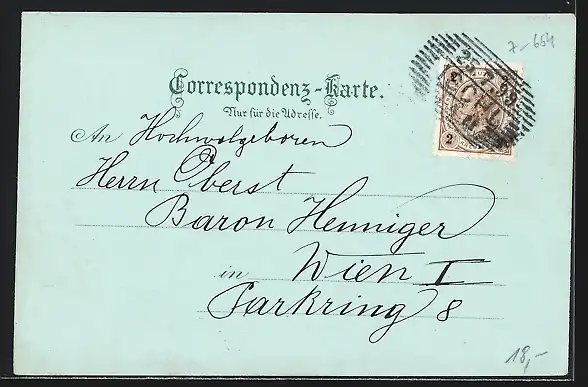 7-654
Correspondenz-Karte.
Nur für die Adresse.
An Hochwolgeboren
Herrn Oberst
Baron Henniger
in Wien I
Parkring 8
2 2
18,-